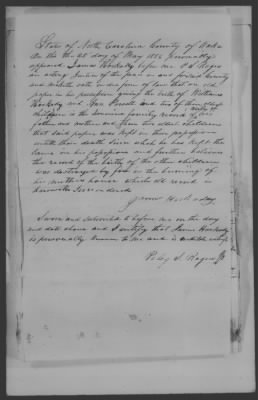 State of North Carolina County of Wake
On this 26 day of May 1856 Personally
appeared James Hockaday before me P. S. Rogers
an acting Justice of the peace in and for said County
and maketh oath in due form of law that an old
paper in his possession giving the births of William
Hockaday and two of their oldest
children is the family record of his
father and mother and their two oldest children
that said paper was kept in their possession
until their death since which he has kept the
same in his possession and further believes
the record of the births of the other children
was destroyed by fire in the burning of
his mothers house which old record is
herewith
James Hockaday
Sworn and subscribed to before me on the day
and date above and I certify that James Hockaday
is personally known to me and is
S. Rogers JP